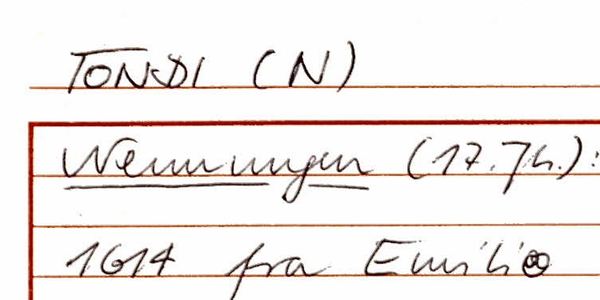 TONDI (N)
Nennungen (17. Jh.):
1614 fra Emilio